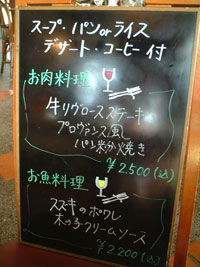 スープ・パンorライス
デザート・コーヒー付
お肉料理
牛リヴロースステーキ
プロヴァンス風
パン粉焼き
¥2,500(込)
お魚料理
スズキのポワレ
木の子クリームソース
¥2,200(込)